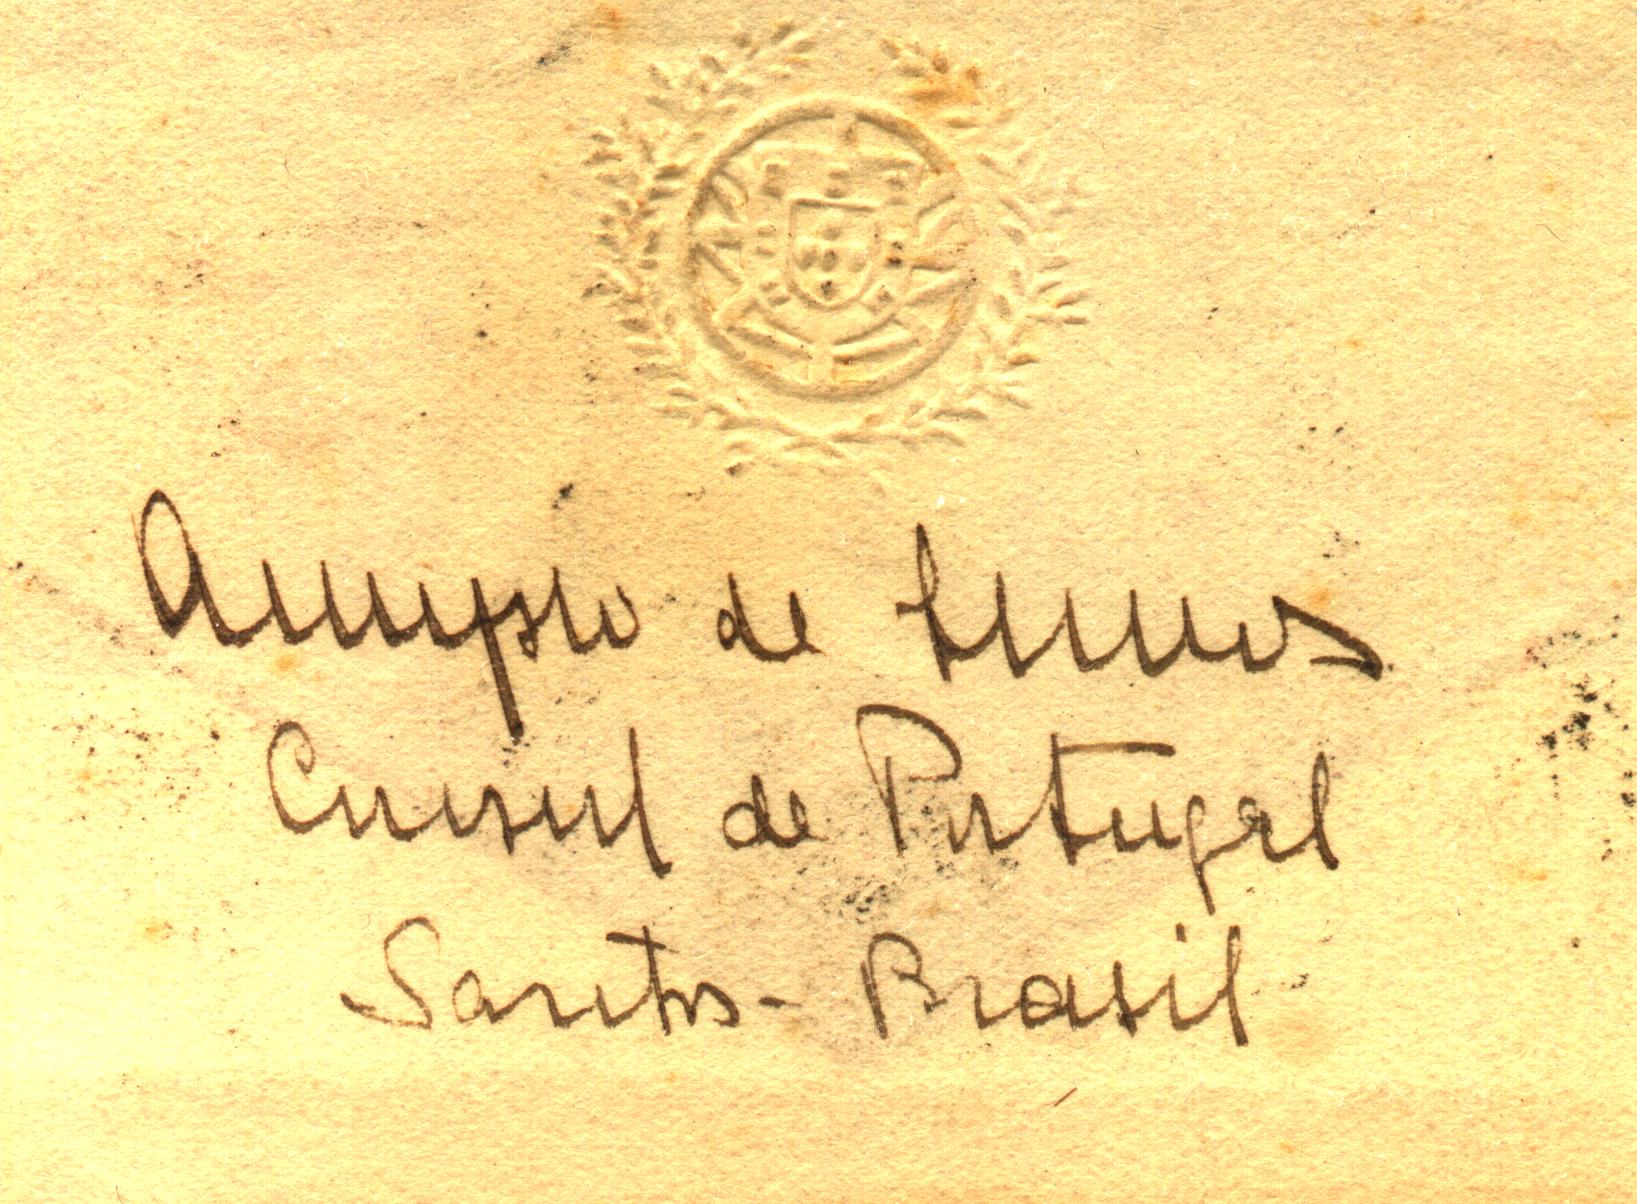 de Lemos
Consul de Portugal
Santos - Brasil